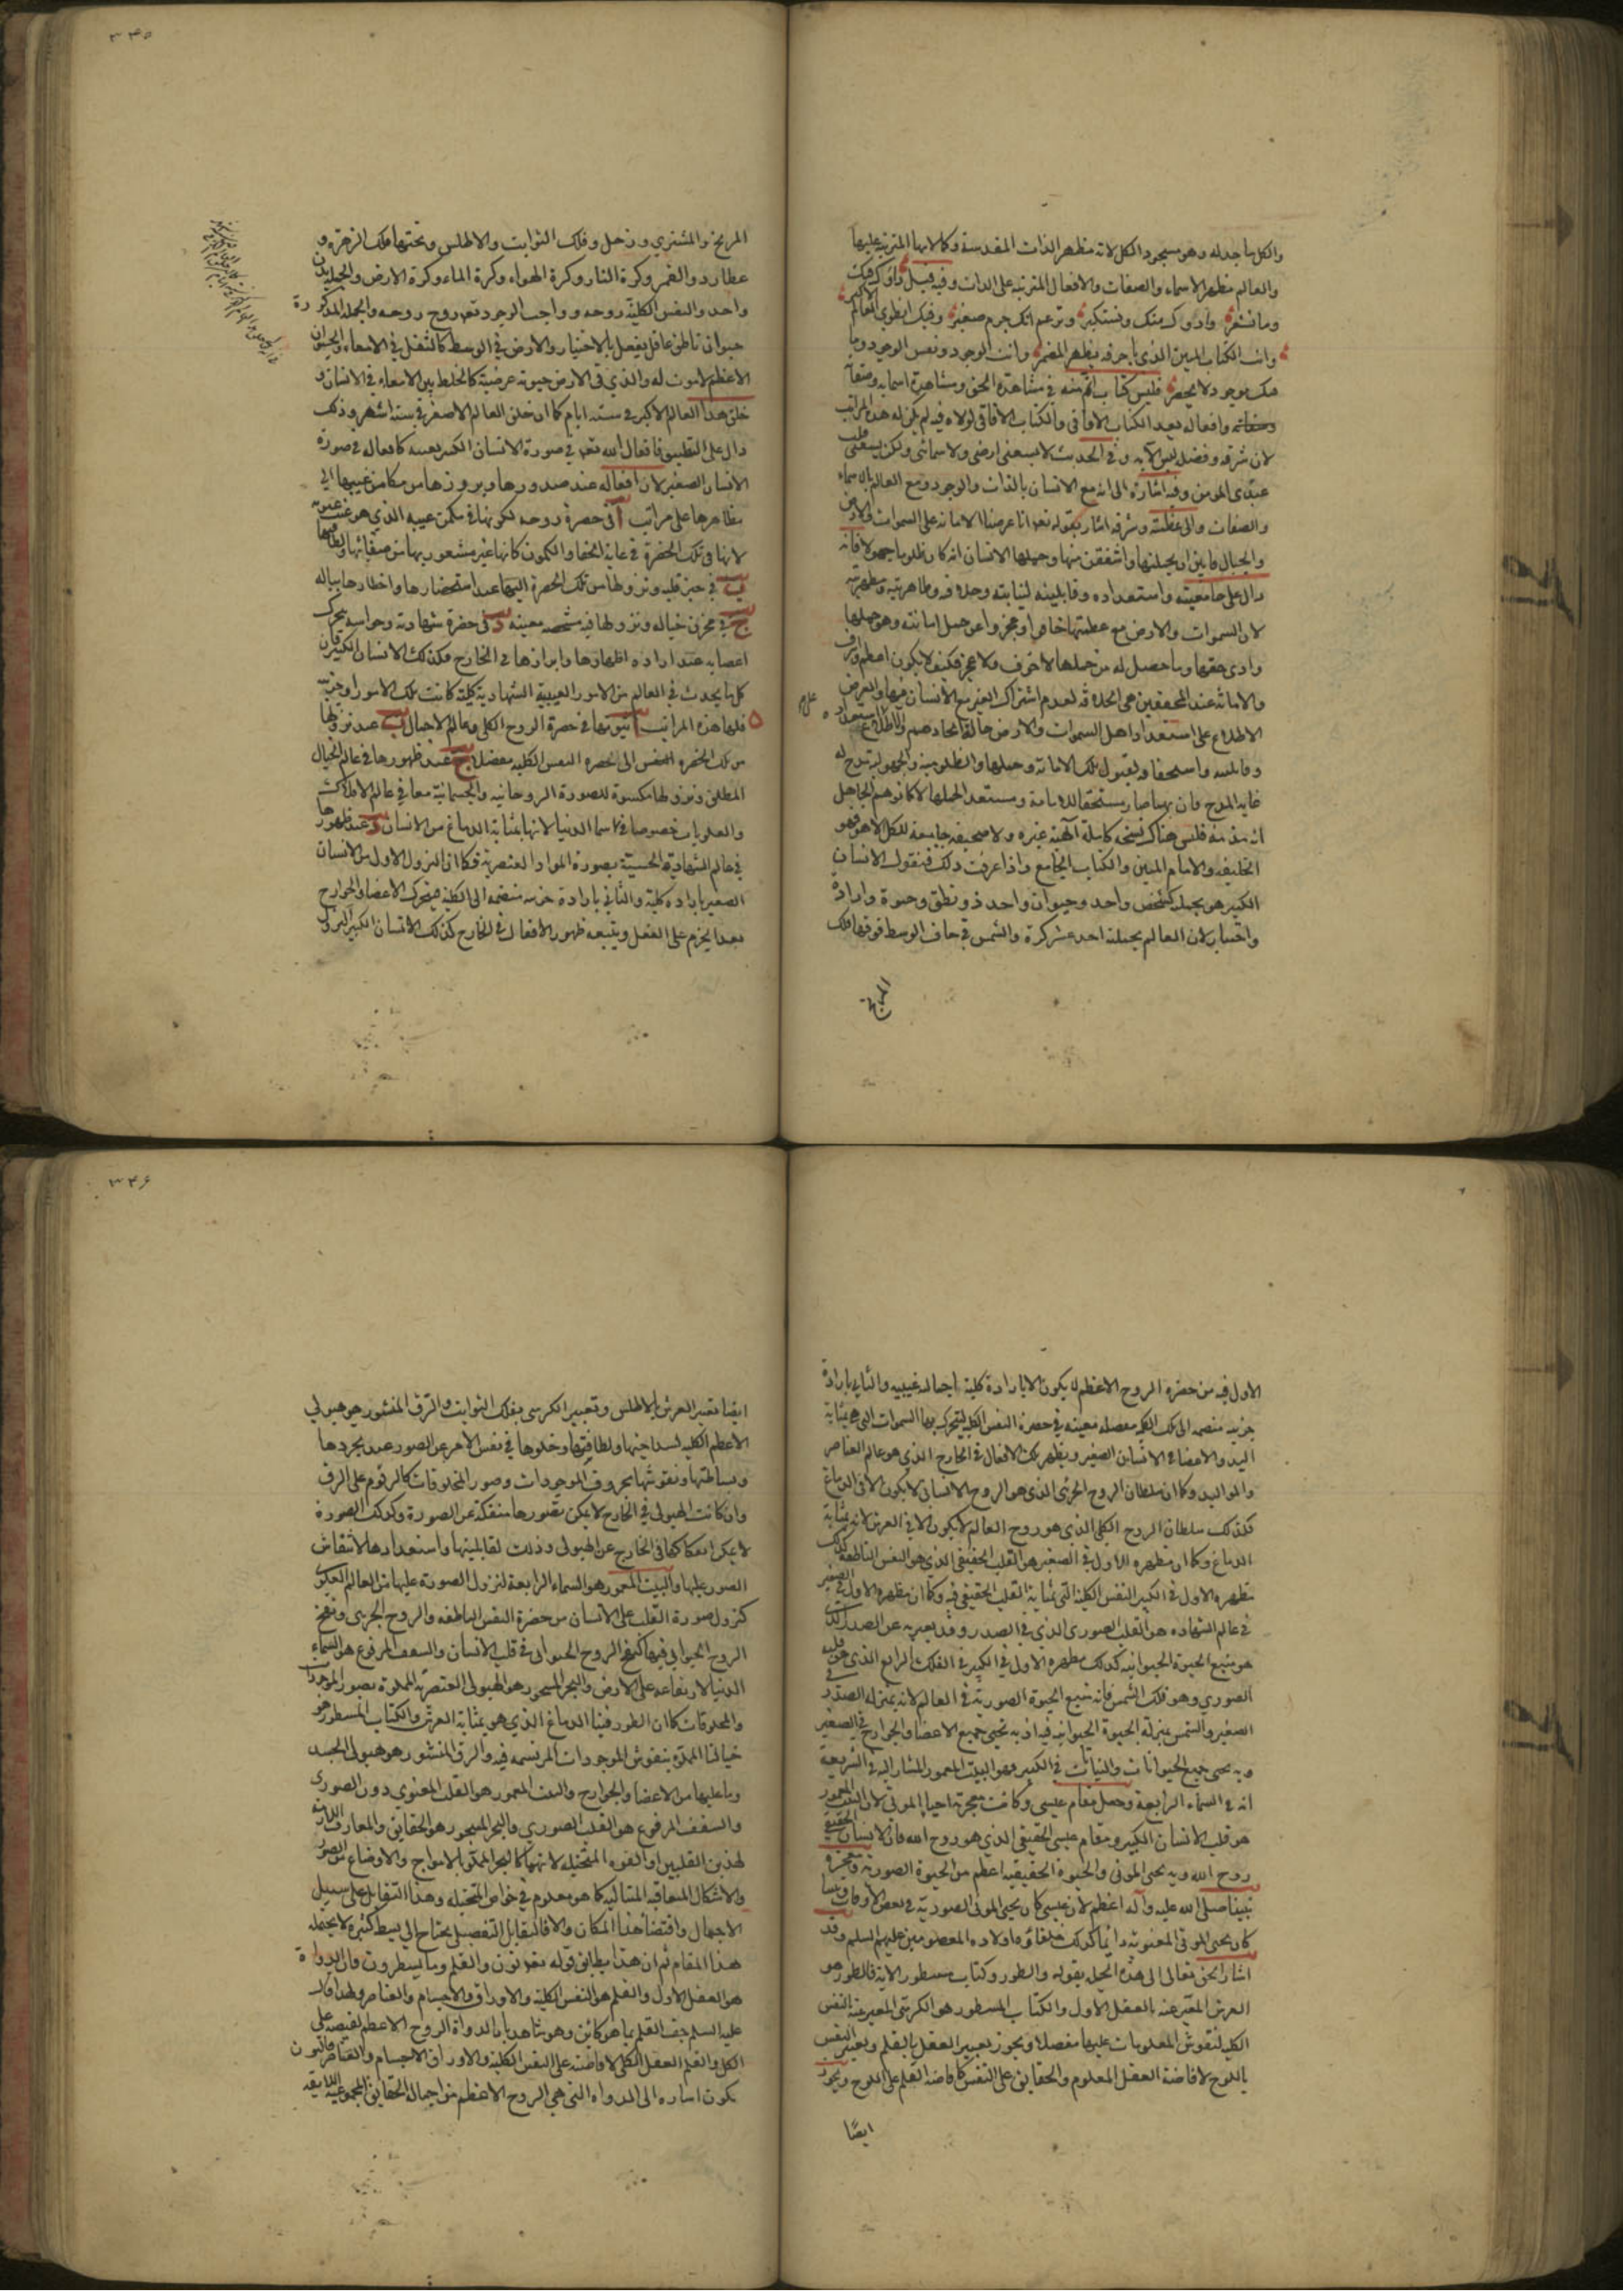 والكل ساجد له وهو مسجود الكل لانه مظهر الذات المقدسة وكمالاتها المترتبة عليها
والعالم مظهر الاسماء والصفات والافعال المترتبة على الذات وفيه قيل دواؤك فيك
وما تشعر وداؤك منك وتستكبر وتزعم انك جرم صغير وفيك انطوى العالم الاكبر
وانت الكتاب المبين الذي باحرفه يظهر المضمر وانت الوجود ونفس الوجود وما
فيك موجود لا يحصر فليس كتاب اتم منه في مشاهدة الحق ومشاهدة اسمائه وصفاته
وافعاله بعد الكتاب الافاقي والكتاب الافاقي لولاه فيه لم يكن له هذه المراتب
لان شرفه وفضله ليس الا به وفي الحديث لا يسعني ارضي ولا سمائي ولكن يسعني قلب
عبدي المومن وفيه اشارة الى انه مع الانسان بالذات والوجود ومع العالم بالاسماء
والصفات والى عظمته وشرفه اشار بقوله تعالى انا عرضنا الامانة على السموات والارض
والجبال فابين ان يحملنها واشفقن منها وحملها الانسان انه كان ظلوما جهولا فانه
دال على جامعيته واستعداده وقابليته لنيابته وخلافه ومظاهريته ومظهريته
لان السموات والارض مع عظمتها خافوا وعجزوا عن حمل امانته وهو حملها
وادى حقها وما حصل له من حملها لا خوف ولا عجز فكيف لا يكون اعظم واشرف
والامانة عند المحققين هي الخلافة لعدم اشتراك الغير مع الانسان فيها والعرض
الاطلاع على استعداد اهل السموات والارض حالة ايجادهم والاطلاع على استعداد
وقابليته واستحقاقه لقبول تلك الامانة وحملها والظلومية والجهولية مدح له
غاية المدح فان بهما صار مستحقا للامانة ومستعدا لحملها لا كما توهم الجاهل
انه مذمة فليس هناك نسخة كاملة الهية غيره ولا صحيفة جامعة للكل الا هو فهو
الخليفة والامام المبين والكتاب الجامع واذا عرفت ذلك فنقول الانسان
الكبير هو بجملته كشخص واحد وحيوان واحد ذو نطق وحيوة وارادة
واختيار لان العالم بجملته احد عشر كرة والشمس في حاق الوسط فوقها فلك
المريخ
٣٤٥
المريخ والمشتري وزحل وفلك الثوابت والاطلس وتحتها فلك الزهرة و
عطارد والقمر وكرة النار وكرة الهواء وكرة الماء وكرة الارض والجملة بدن
واحد والنفس الكلية روحه وواجب الوجود تعالى روح روحه والجملة المذكورة
حيوان ناطق عاقل يفعل بالاختيار والارض في الوسط كالثفل في الامعاء والحيوان
الاعظم لا موت له والذي في الارض حيوته عرضية كالخلط بين الامعاء في الانسان و
خلق هذا العالم الاكبر في ستة ايام كما ان خلق العالم الاصغر في ستة اشهر وذلك
دال على التطبيق فافعال الله تعالى في صورة الانسان الكبير بعينه كافعاله في صورة
الانسان الصغير لان افعاله عند صدورها وبروزها من مكامن غيبها الى
مظاهرها على مراتب آ في حضرة روحه لكونها في مكمن غيبه الذي هو غيب غيوبه
لانها في تلك الحضرة في غاية الخفا والكمون كانها غير مشعور بها من صفائها ولطافتها
ب في حيز قلبه ونزولها من تلك الحضرة اليها عند استحضارها واخطارها بباله
ج في مخزن خياله ونزولها فيه مشخصة معينة د في حضرة شهادته وحواسه بتحرك
اعضائه عند ارادة اظهارها وابرازها في الخارج فكذلك الانسان الكبير فان
كل ما يحدث في العالم من الامور الغيبية الشهادية كلية كانت تلك الامور او جزئية
فلها هذه المراتب آ ثبوتها في حضرة الروح الكلي وعالم الاجمال ب عند نزولها
من تلك الحضرة الى حضرة النفس الكلية مفصلا ج عند ظهورها في عالم الخيال
المطلق ونزولها مكسوة للصورة الروحانية والجسمانية معا في عالم الافلاك
والعلويات خصوصا في سما الدنيا لانها بمثابة الدماغ من الانسان د عند ظهورها
في عالم الشهادة الحسية بصورة المواد العنصرية فكما ان النزول الاول من الانسان
الصغير بارادة كلية والثاني بارادة جزئية منضمة الى الكلية فيتحرك الاعضا والجوارح
بعد الجزم على الفعل ويتبعه ظهور الافعال في الخارج كذلك الانسان الكبير النزول
الاول فيه من حضرة الروح الاعظم لا يكون الا بارادة كلية اجمالية غيبية والثاني بارادة
جزئية منضمة الى تلك الكلية مفصلة معينة في حضرة النفس الكلية ليتحرك بها السموات التي هي بمثابة
اليد والاعضا في الانسان الصغير ويظهر تلك الافعال في الخارج الذي هو عالم العناصر
والمواليد وكما ان سلطان الروح الجزئي الذي هو الروح الانساني لا يكون الا في الدماغ
كذلك سلطان الروح الكلي الذي هو روح العالم لا يكون الا في العرش لانه بمثابة
الدماغ وكما ان مظهره الاول في الصغير هو القلب الحقيقي الذي هو النفس الناطقة كذلك
مظهره الاول في الكبير النفس الكلية التي بمثابة القلب الحقيقي فيه وكما ان مظهره الاول في الصغير
في عالم الشهادة هو القلب الصوري الذي في الصدر وقد يعبر به عن الصدر الذي
هو منبع الحيوة الحيوانية كذلك مظهره الاول في الكبير في الفلك الرابع الذي هو قلبه
الصوري وهو فلك الشمس فانه منبع الحيوة الصورية في العالم لانه بمنزلة الصدر في
الصغير والشمس بمنزلة الحيوة الحيوانية فيه اذ به تحيى جميع الاعضا والجوارح في الصغير
وبه يحيى جميع الحيوانات والنباتات في الكبير وهو البيت المعمور المشار اليه في الشريعة
انه في السماء الرابعة وجعل مقام عيسى وكانت معجزته احياء الموتى لان البيت المعمور
هو قلب الانسان الكبير ومقام عيسى الحقيقي الذي هو روح الله فان الانسان الحقيقي
روح الله وبه يحيى الموتى والحيوة الحقيقية اعظم من الحيوة الصورية ومعجزة
نبينا صلى الله عليه وآله اعظم لان عيسى كان يحيى الموتى الصورية في بعض الاوقات ونبينا
كان يحيى الموتى المعنوية دائما كذلك خلفاؤه اولاده المعصومين عليهم السلام وقد
اشار الحق تعالى الى هذه الجملة بقوله والطور وكتاب مسطور الاية فالطور هو
العرش المعبر عنه بالعقل الاول والكتاب المسطور هو الكرسي المعبر عنه بالنفس
الكلية لنقوش المعلومات عليها مفصلا ويجوز تعبير العقل بالقلم وتعبير النفس
باللوح لافاضة العقل المعلوم والحقايق على النفس كافاضة القلم على اللوح ويجوز
ايضًا
٣٤٦
ايضا تعبير العرش بالاطلس وتعبير الكرسي بفلك الثوابت والرق المنشور هو هيولى
الاعظم الكلية لسذاجتها ولطافتها وخلوها في نفس الامر عن الصور عند تجردها
وبساطتها ونقوشها بحروف الموجودات وصور المخلوقات كالرقوم على الرق
وان كانت الهيولى في الخارج لا يمكن تصورها منفكة عن الصورة وكذلك الصورة
لا يمكن انفكاكها في الخارج عن الهيولى وذلك لقابليتها واستعدادها لانتقاش
الصور عليها والبيت المعمور هو السماء الرابعة لنزول الصورة عليها من العالم العلوي
كنزول صورة القلب على الانسان من حضرة النفس الناطقة والروح الجزئي ونفخ
الروح الحيواني فيها كنفخ الروح الحيواني في قلب الانسان والسقف المرفوع هو السماء
الدنيا لارتفاعه على الارض والبحر المسجور هو الهيولى العنصرية المملوة بصور الموجودات
والمخلوقات كما ان الطور فينا الدماغ الذي هو بمثابة العرش والكتاب المسطور هو
خيالنا المملوة بنقوش الموجودات المرتسمة فيه والرق المنشور هو هيولى الجسد
وما عليها من الاعضا والجوارح والبيت المعمور هو القلب المعنوي دون الصوري
والسقف المرفوع هو القلب الصوري والبحر المسجور هو الحقايق والمعارف اللازمة
لهذين القلبين او القوة المتخيلة لانهما كالبحر المملو بالامواج والاوضاع من الصور
والاشكال المتعاقبة المتتالية كما هو معلوم في خواص المتخيلة وهذا التقابل على سبيل
الاجمال واقتضا هذا المكان والا فالتقابل التفصيلي يحتاج الى بسط كثيرة لا يحتمله
هذا المقام ثم ان هذا يطابق قوله تعالى نون والقلم وما يسطرون فان الدواة
هو العقل الاول والقلم هو النفس الكلية والاوراق والاجسام والعناصر ولهذا قال
عليه السلام جف القلم بما هو كائن وهو شاهد بان الدواة الروح الاعظم لفيضه على
الكل والقلم العقل الكلي لافاضته على النفس الكلية والاوراق الاجسام والعناصر فالنون
يكون اشارة الى الدواة التي هي الروح الاعظم من اجمال الحقايق المجموعية اللايقة